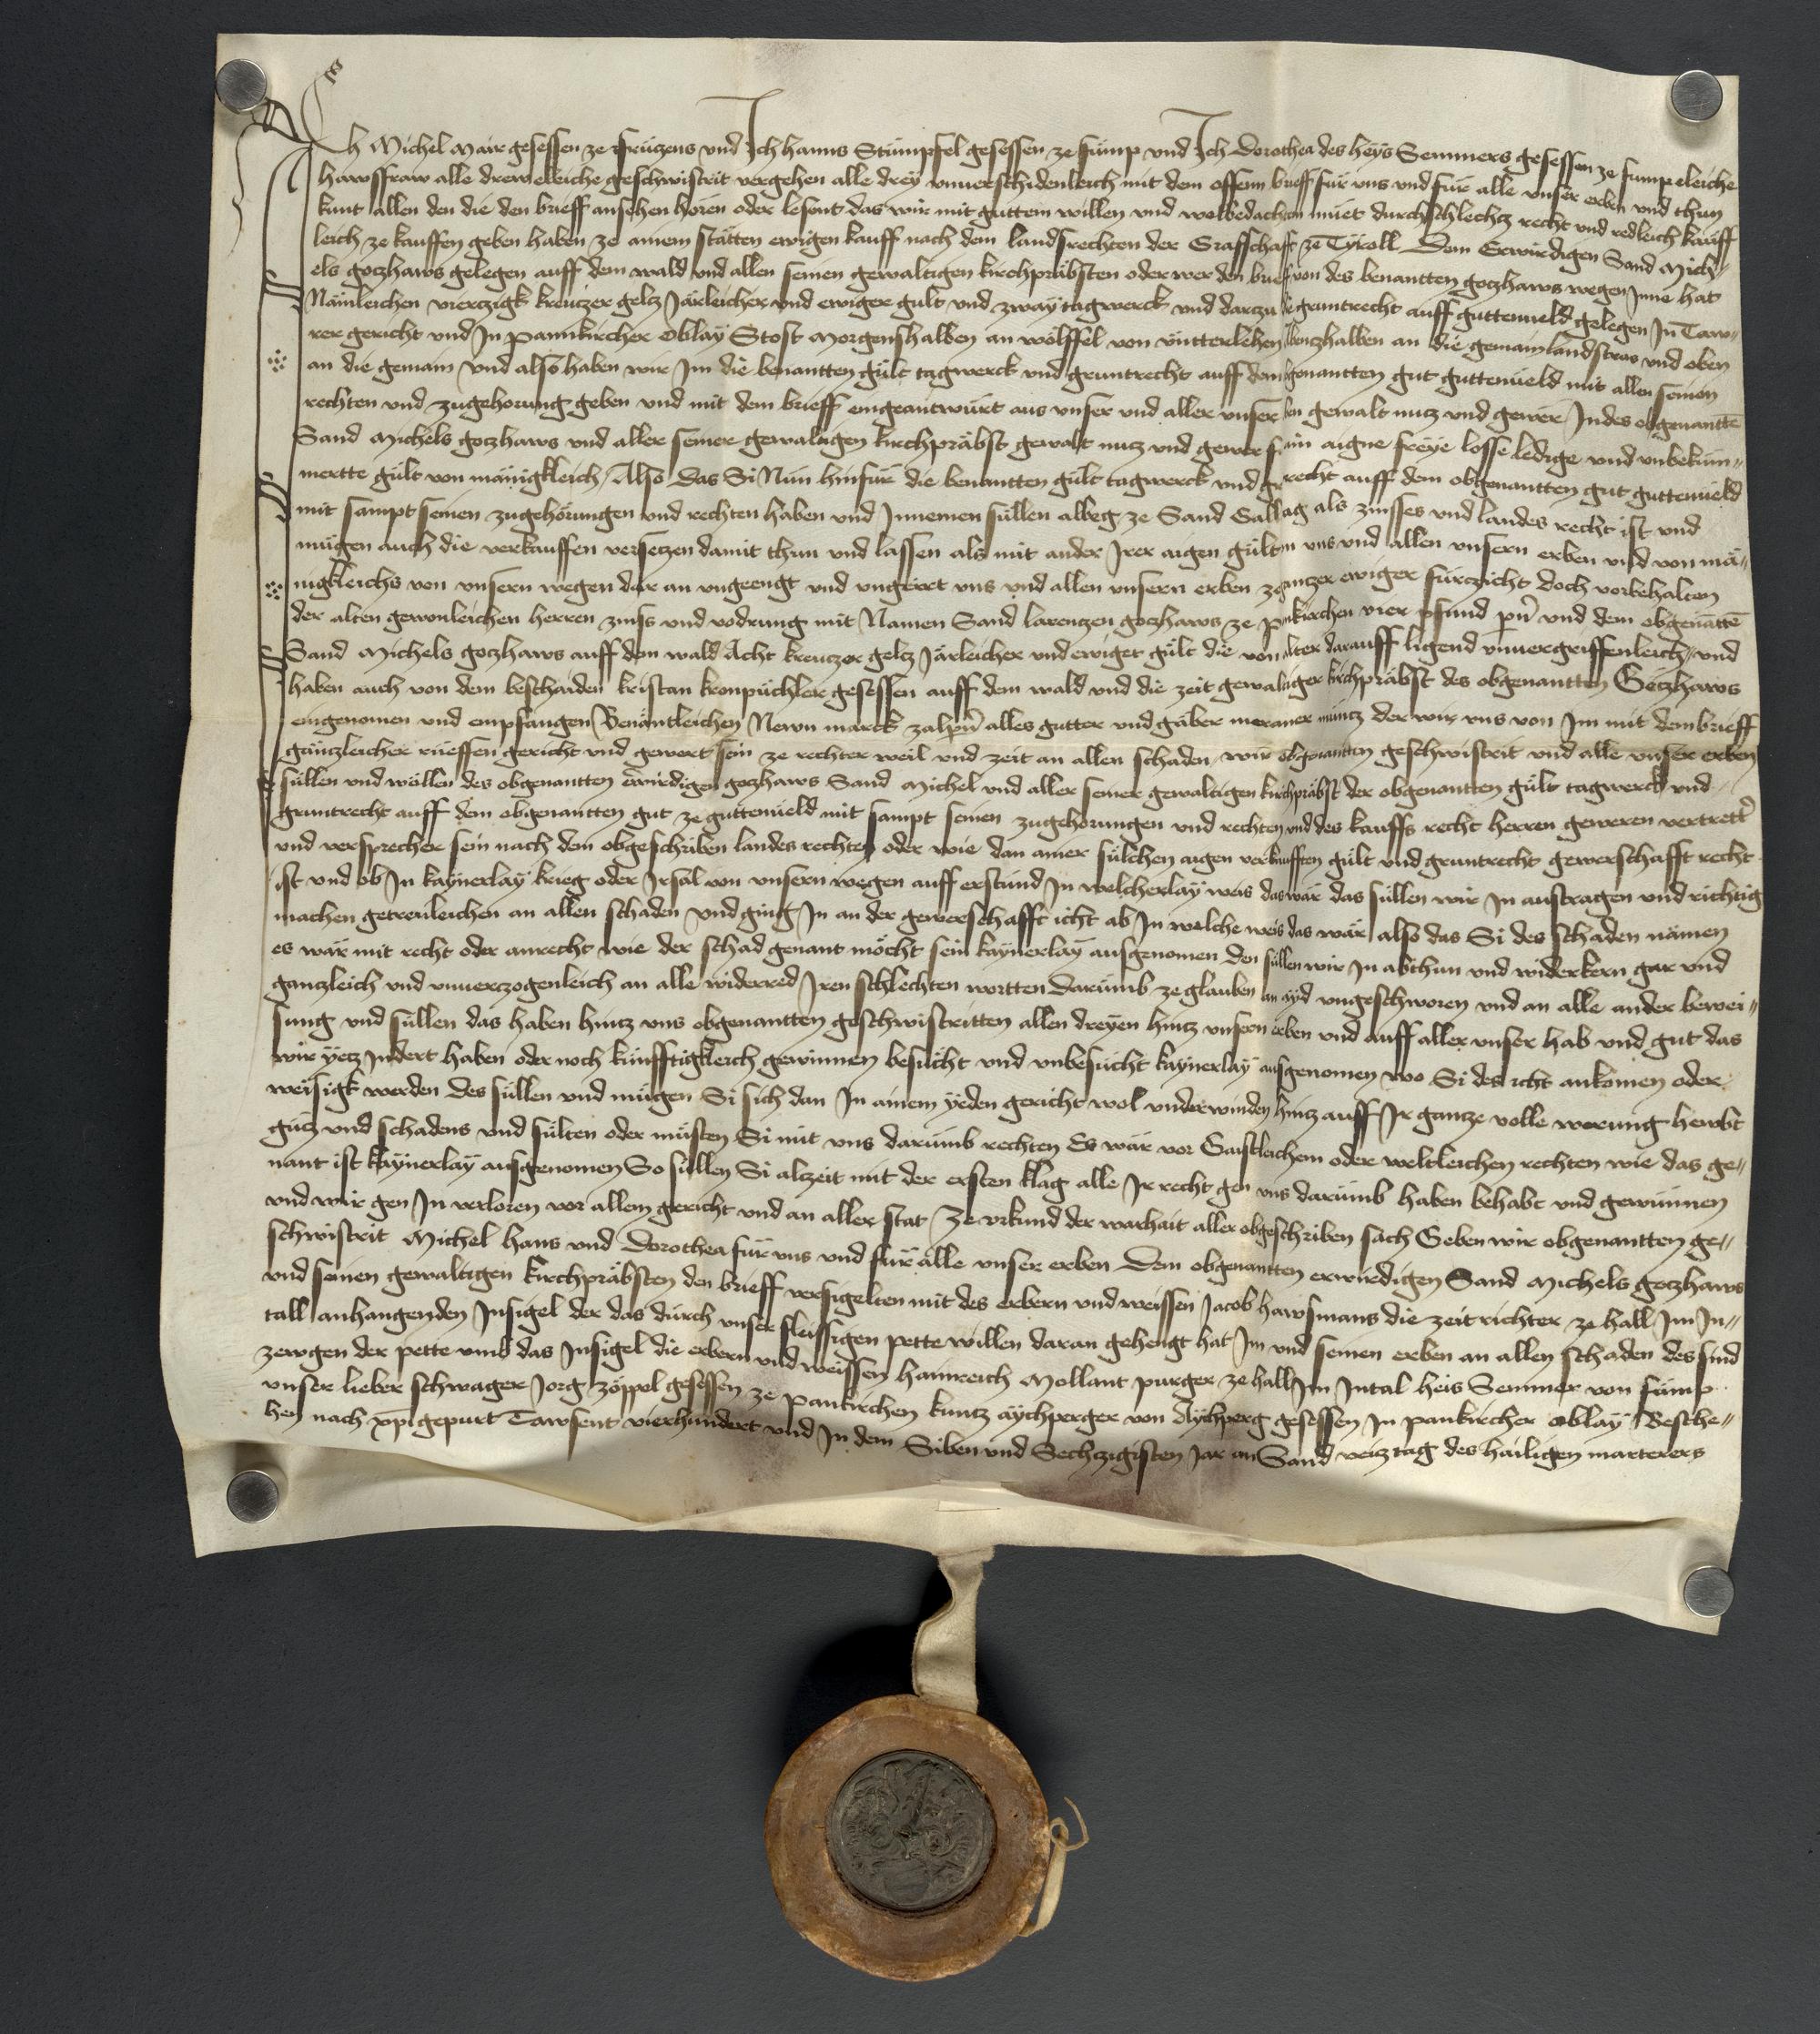 Ich Michel Mair gesessen ze Frützens vnd Ich hanns Stümpfel gesessen ze fümp vnd Ich Dorothea des heys Semmers gesessen ze fump eleiche
hawsfraw alle drew eleiche geschwistreit vergehen alle drey vnuerschidenleich mit dem offenn brieff für vns vnd für alle vnser erben vnd thun
kunt allen den die den brieff ansehen hören oder lesent das wir mit guttem willen vnd wolbedachten müet durchschlechtz recht vnd redleich kauff
leich ze kauffen geben haben ze ainem stätten ewigen kauff nach dem landsrechten der Graffschafft ze Tyroll Dem Erwirdigen Sand Mich-
els gotzhaws gelegen auff dem wald vnd allen seinen gewaltigen kirchpräbsten oder wer den brieff von des benantten gotzhaws wegen Inne hat
Nämleichen vierczigk kreüczer geltz Järleicher vnd ewiger gult vnd zway tagwerck vnd darzu gruntrecht auff guttenueld gelegen In Taw-
rer gericht vnd In pannkircher Oblay Stost Morgenshalben an wölffel von vntterlehen abentzhalben an die gemain landstras vnd oben
an die gemain vnd also haben wir Im die benantten gült tagwerck vnd gruntrecht auff dem genantten gut guttenueld mit allen seinen
rechten vnd zugehorung geben vnd mit dem brieff eingeantwürt aus vnser vnd aller vnser erben gewalt nutz vnd gewer In des obgenantte
Sand Michels gotzhaws vnd aller seiner gewaltigen kirchpräbst gewalt nutz vnd gewer für ain aigne freye losse ledige vnd vnbeküm-
mertte gült von mänigkleich Also das Si Nun hinfür die benantten gült tagwerck vnd gruntrecht auff dem obgenantten gut guttenueld
mit sampt seinen zugehörungen vnd rechten haben vnd Innemen süllen albeg ze Sand Gallntag als zinsses vnd landes recht ist vnd
mügen auch die verkauffen versetzen damit thun vnd lassen als mit ander Irer aigen gülten vns vnd allen vnsern erben vnd von mä-
nigkleichs von vnsern wegen dar an vngeengt vnd vngeirret vns vnd allen vnsern erben ze gantzer ewiger fürczicht doch vorbehalten
der alten gewonleichen herren zinss vnd vodrung mit Namen Sand larentzen gotzhaws ze pankirchen vier pfund pn vnd dem obgenatte
Sand Michels gotzhaws auff dem wald Acht kreutzer geltz Järleicher vnd ewiger gült die von alter darauff ligend vnuergriffenleich vnd
haben auch von dem beschaiden kristan kronpüchler gesessen auff dem wald vnd die zeit gewaltiger kirchpräbst des obgenantten Gotzhaws
eingenomen vnd empfangen Benäntleichen Newn marck zalpn alles gutter vnd gäber meraner müntz der wir vns von Im mit dem brieff
gäntzleicher rüeffen gericht vnd gewert sein ze rechter weil vnd zeit an allen schaden wir obgenantten geschwistreit vnd alle vnser erben
süllen vnd wöllen des obgenantten erwirdigen gotzhaws Sand Michel vnd aller seiner gewaltigen kirchpräbst der obgenantten gült tagwerck vnd
gruntrecht auff dem obgenantten gut ze guttenueld mit sampt seinen zugehorungen vnd rechten vnd des kauffs recht herren geweren vertrett
vnd versprecher sein nach dem obgeschriben landes rechten oder wie dan ainer sülchen aigen verkaufften gült vnd gruntrecht gewerschafft recht
ist vnd ob In kaynerlay krieg oder Irsal von vnsern wegen auff erstünd In welcherlay weis das wär das süllen wir In austragen vnd richtig
machen getreuleichen an allen schaden vnd gieng In an der gewerschafft icht ab In welche weis das wär also das Si des schaden nämen
es wär mit recht oder anrecht wie der schad genant möcht sein kaynerlay ausgenomen den süllen wir In abthun vnd widerkern gar vnd
gantzleich vnd vnuerczogenleich an alle widerred Iren schlechten wortten darümb ze glauben an ayd vngeschworen vnd an alle ander bewei-
sung vnd süllen das haben hintz vns obgenantten geschwistritten allen dreyen hintz vnsern erben vnd auff aller vnser hab vnd gut das
wir yetz Indert haben oder noch künfftigkleich gewinnen besücht vnd vnbesücht kaynerlay ausgenomen wo Si des icht ankomen oder
weisigk werden des süllen vnd mügen Si sich dan In ainem yeden gericht wol vnderwinden hintz auff Ir gantze volle werung hewbt
gütz vnd schadens vnd sülten oder müsten Si mit vns darümb rechten Es wär vor Gaistleichem oder weltleichen rechten wie das ge-
nant ist kaynerlay ausgenomen So süllen Si alzeit mit der ersten klag alle Ir recht gen vns darümb haben behabt vnd gewünnen
vnd wir gen In verloren vor allem gericht vnd an aller stat Ze vrkund der warhait aller obgeschriben sach Geben wir obgenantten ge-
schwistreit Michel hans vnd Dorothea für vns vnd für alle vnser erben Dem obgenantten erwirdigen Sand Michels gotzhaws
vnd seinen gewaltigen kirchpräbsten den brieff versigelten mit des erbern vnd weissen Jacob hawsmans die zeit richter ze hall Im In-
tall anhangenden Insigel der das durch vnser fleissigen pette willen daran gehengt hat Im vnd seinen erben an allen schaden des sind
zewgen der pette vmb das Insigel die erbern vnd weissen hainreich Mollant purger ze hall Im Intal heis Semmer von fümp
vnser lieber schwager Jorg zöppel gesessen ze pankirchen kuntz aychperger von Aychperg gesessen In pankircher oblay Besche-
hen nach xpi gepurt Tawsent vierhundert vnd In dem Siben vnd Sechzigisten Jar an Sand veitz tag des hailigen marterers